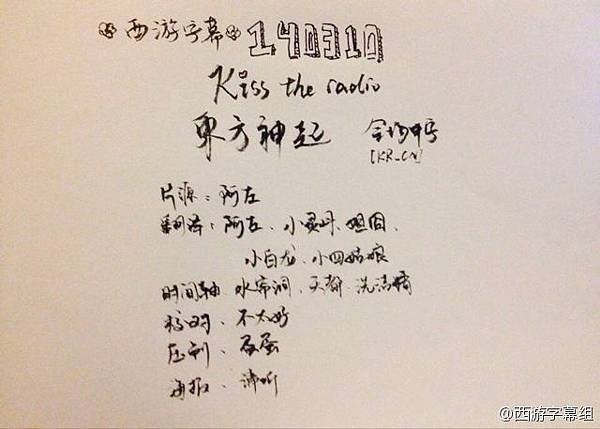 西游字幕 140310
Kiss the radio
東方神起 全场中字
[KR_CN]
片源：阿左
翻译：阿左、小灵叶、姐囧、
小白龙、小四姑娘
时间轴、水帘洞、天蓬、洗洁精
校对、不太好
压制、蛋蛋
海报、谛听
@西游字幕组